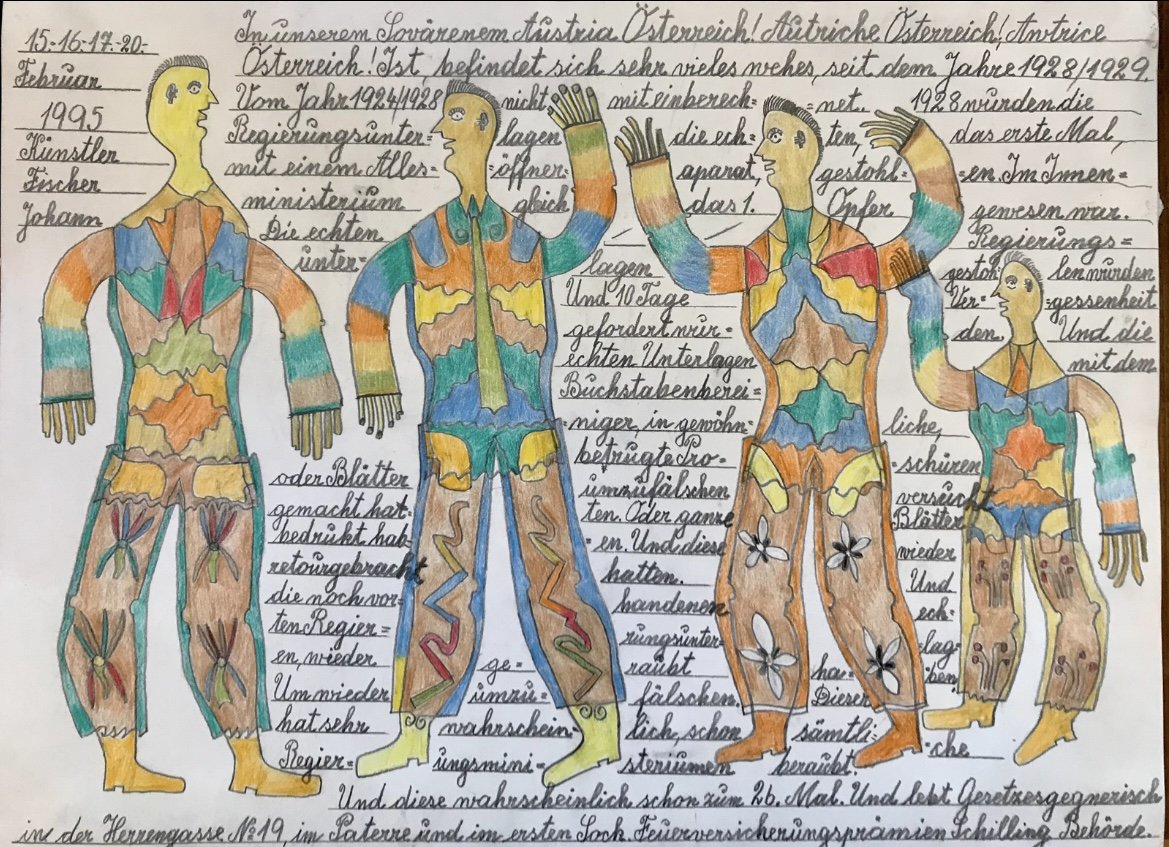 15.-16.-17.-20.-
Februar
1995
Künstler
Fischer
Johann
In unserem Sovärenem Austria Österreich! Autriche Österreich! Awtrice
Österreich! Ist, befindet sich sehr vieles wehes, seit dem Jahre 1928/1929.
Vom Jahr 1924/1928 nicht mit einberech= =net. 1928 wurden die
Regierungsunter= lagen die ech= ten, das erste Mal,
mit einem Alles= öffner= aparat, gestohl= =en. Im Innen=
ministerium gleich das 1. Opfer gewesen war.
Die echten Regierungs=
unter= lagen gestoh= len wurden
Und 10 Tage Ver= =gessenheit
gefordert wur= den. Und die
echten Unterlagen mit dem
Buchstabenberei=
=niger, in gewöhn= liche,
oder Blätter betrugte Pro= =schüren
gemacht hat= umzufälschen versucht
bedrukt hab= ten. Oder ganze Blätter
retourgebracht =en. Und diese wieder
die noch vor= hatten. Und
ten Regier= handenen ech=
en, wieder ge= rungsunter= lag=
Um wieder umzu= raubt ha= ben.
hat sehr wahrschein= fälschen. Dieser
Regier= ungsmini= lich, schon sämtli= che
steriumen beraubt.
Und diese wahrscheinlich schon zum 26. Mal. Und lebt Gesetzesgegnerisch
in der Herrengasse No 19, im Paterre und im ersten Sock. Feuerversicherungsprämien Schilling Behörde.